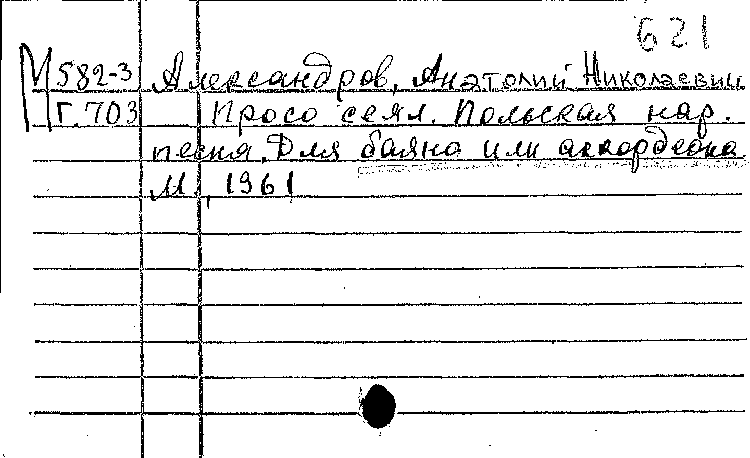 621
М 582-3 Александров, Анатолий Николаевич
Г.703 Просо сеял. Польская нар.
песня. Для баяна или аккордеона
М., 1961